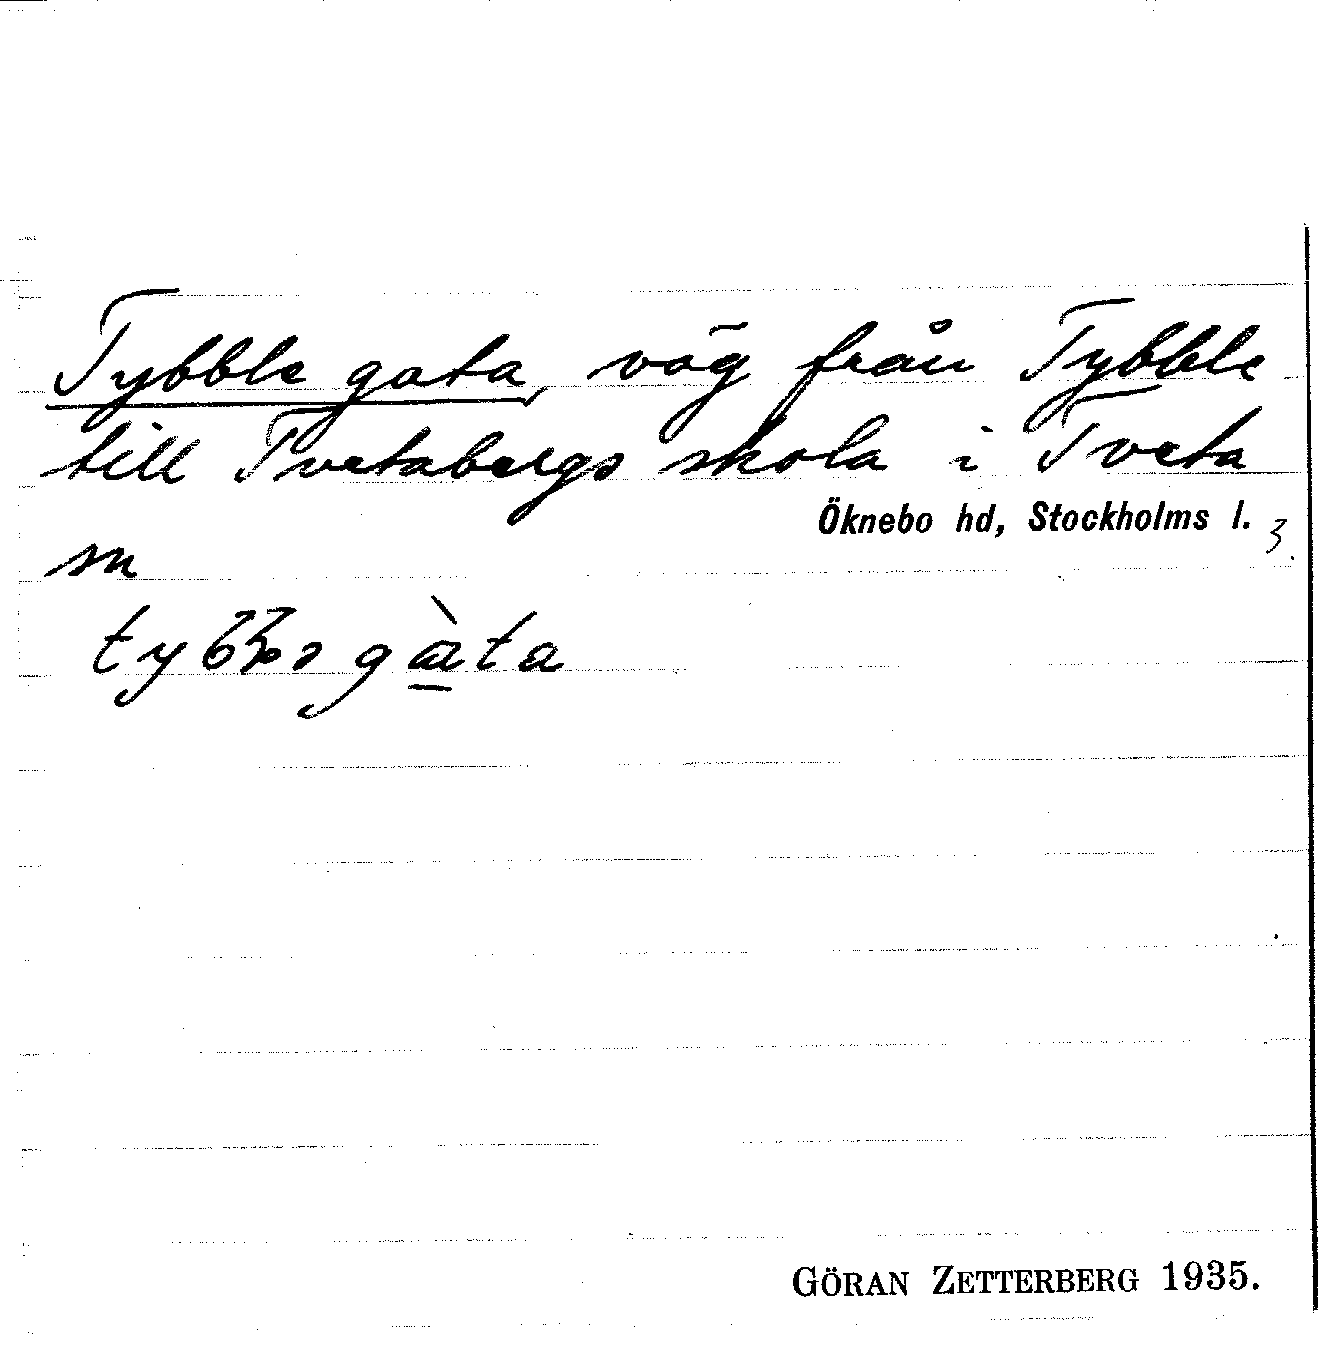 Tybble gata, väg från Tybble
till Tvetabergs skola i Tveta
Öknebo hd, Stockholms l. 3.
sn
GÖRAN ZETTERBERG 1935.